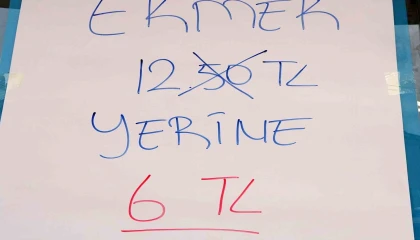 EKMEK
12.50 TL
YERİNE
6 TL